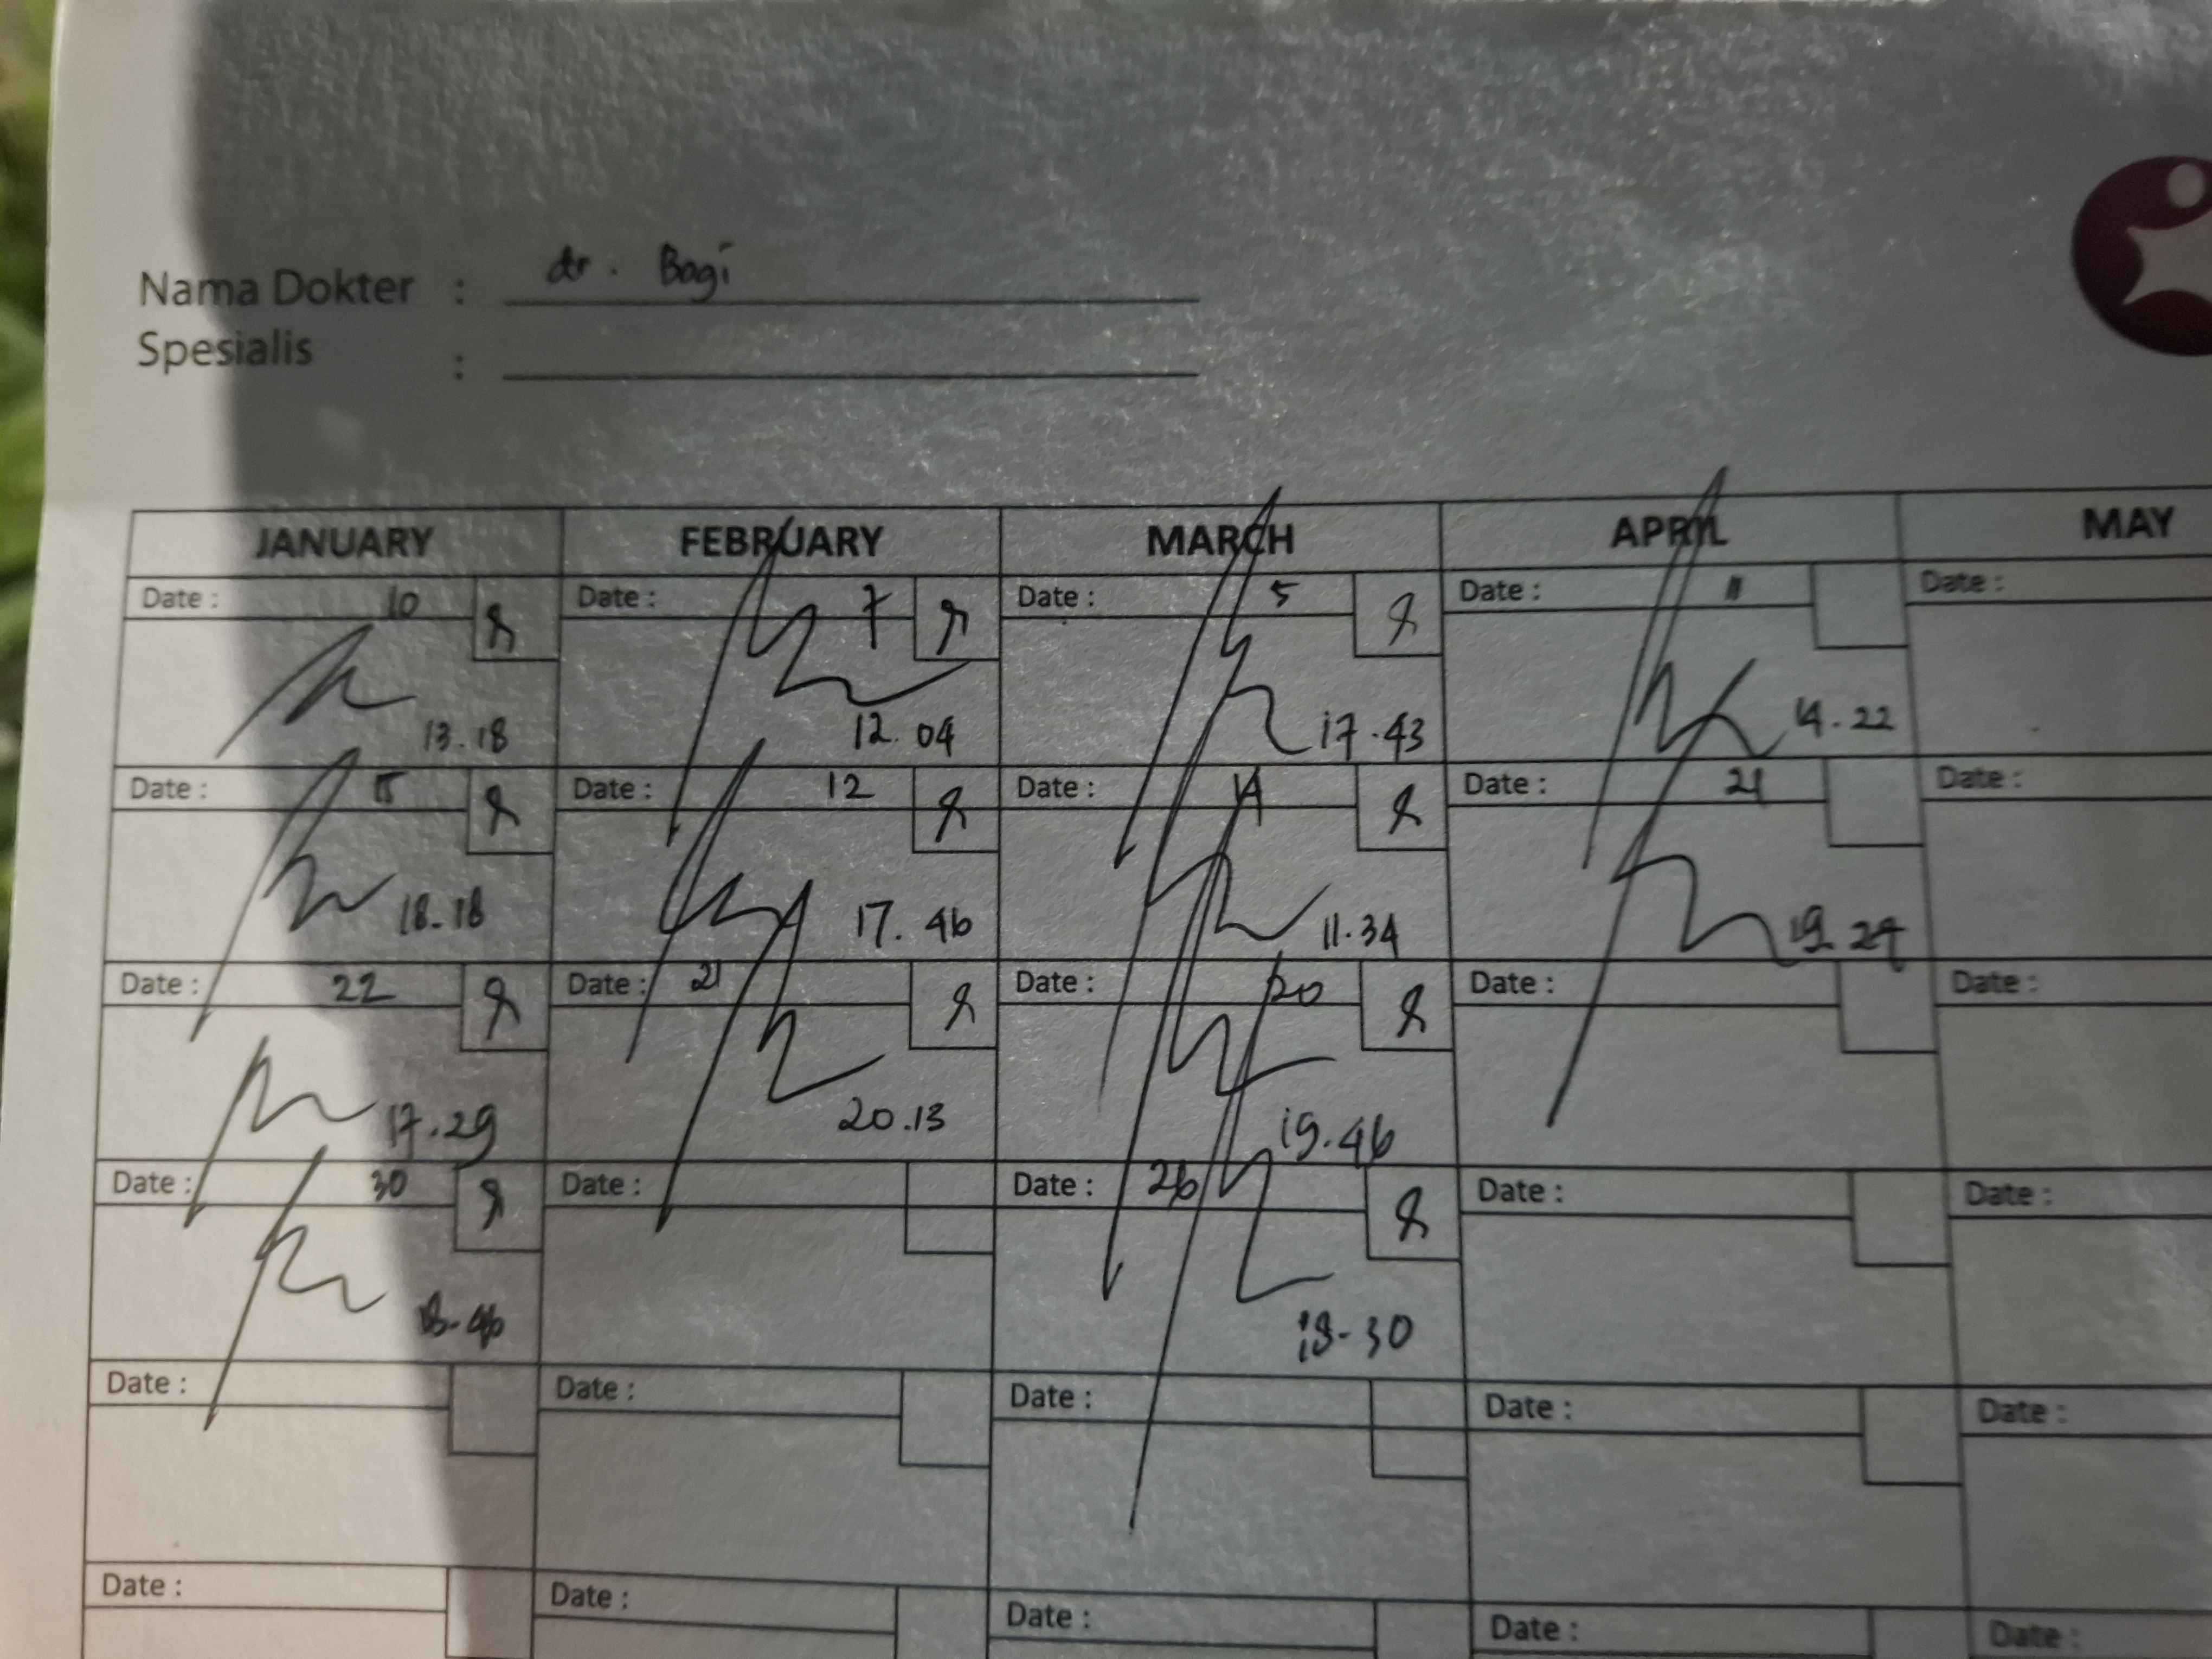 Nama Dokter : dr. Bagi
Spesialis :
JANUARY FEBRUARY MARCH APRIL MAY
Date : 10 Date : 7 Date : 5 Date : 11 Date :
13.18 12.04 17.43 14.22
Date : 15 Date : 12 Date : 14 Date : 21 Date :
18.18 17.46 11.34 19.24
Date : 22 Date : 21 Date : 20 Date : Date :
17.29 20.13 19.46
Date : 30 Date : Date : 26 Date : Date :
18-30
Date : Date : Date : Date : Date :
Date : Date : Date : Date : Date :